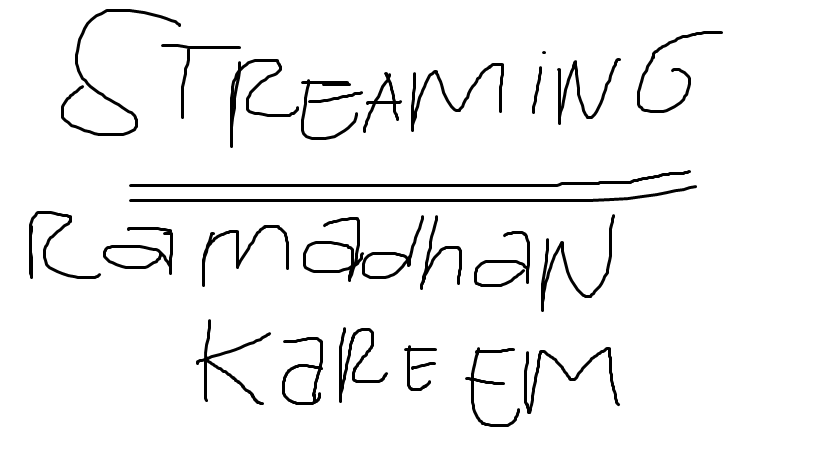 STREAMiNG
Ramadhan
KaREEM